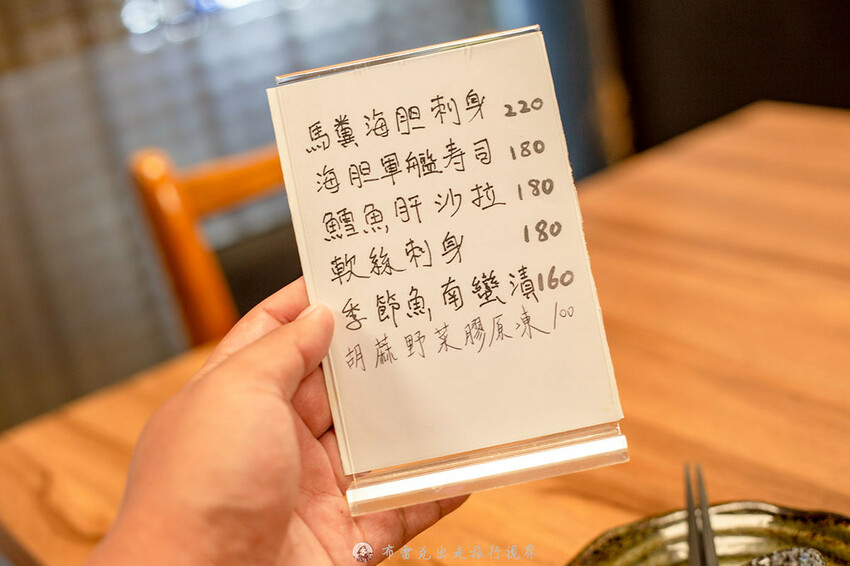 馬糞海胆刺身 220
海胆軍艦寿司 180
鱈魚肝沙拉 180
軟絲刺身 180
季節魚南蠻漬 160
胡蔴野菜膠原凍 100
布雷克出走旅行視界